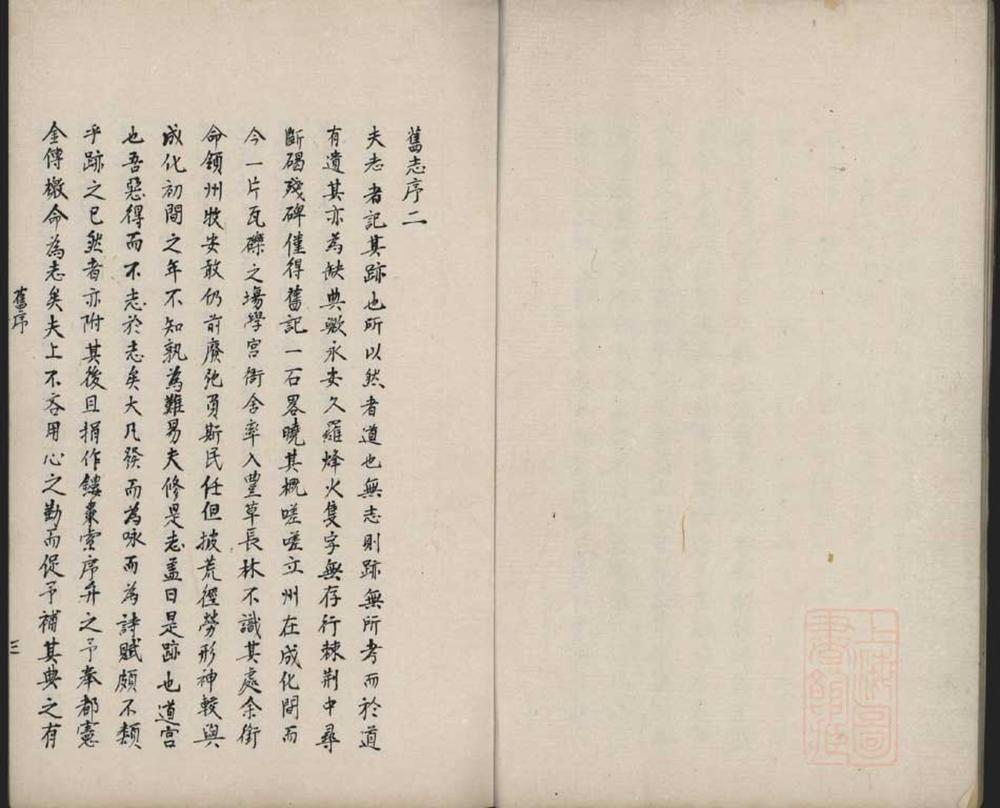 舊志序二
夫志者記其跡也所以然者道也無志則跡無所考而於道
有遺其亦為缺典歟永安久羅烽火隻字無存行棘荆中尋
斷碣殘碑僅得舊記一石畧曉其概嗟嗟立州在成化間而
今一片瓦礫之塲學宫衙舍率入豐草長林不識其處余銜
命領州牧安敢仍前廢弛負斯民任但披荒徑勞形神較與
成化初間之年不知孰為難易夫修是志盖曰是跡也道宫
也吾惡得而不志於志矣大凡發而為咏而為詩賦頗不類
乎跡之已然者亦附其後且捐作鏤棗索序弁之予奉都憲
金傳檄命為志矣夫上不吝用心之勤而促予補其典之有
舊序
三
上海圖書館藏